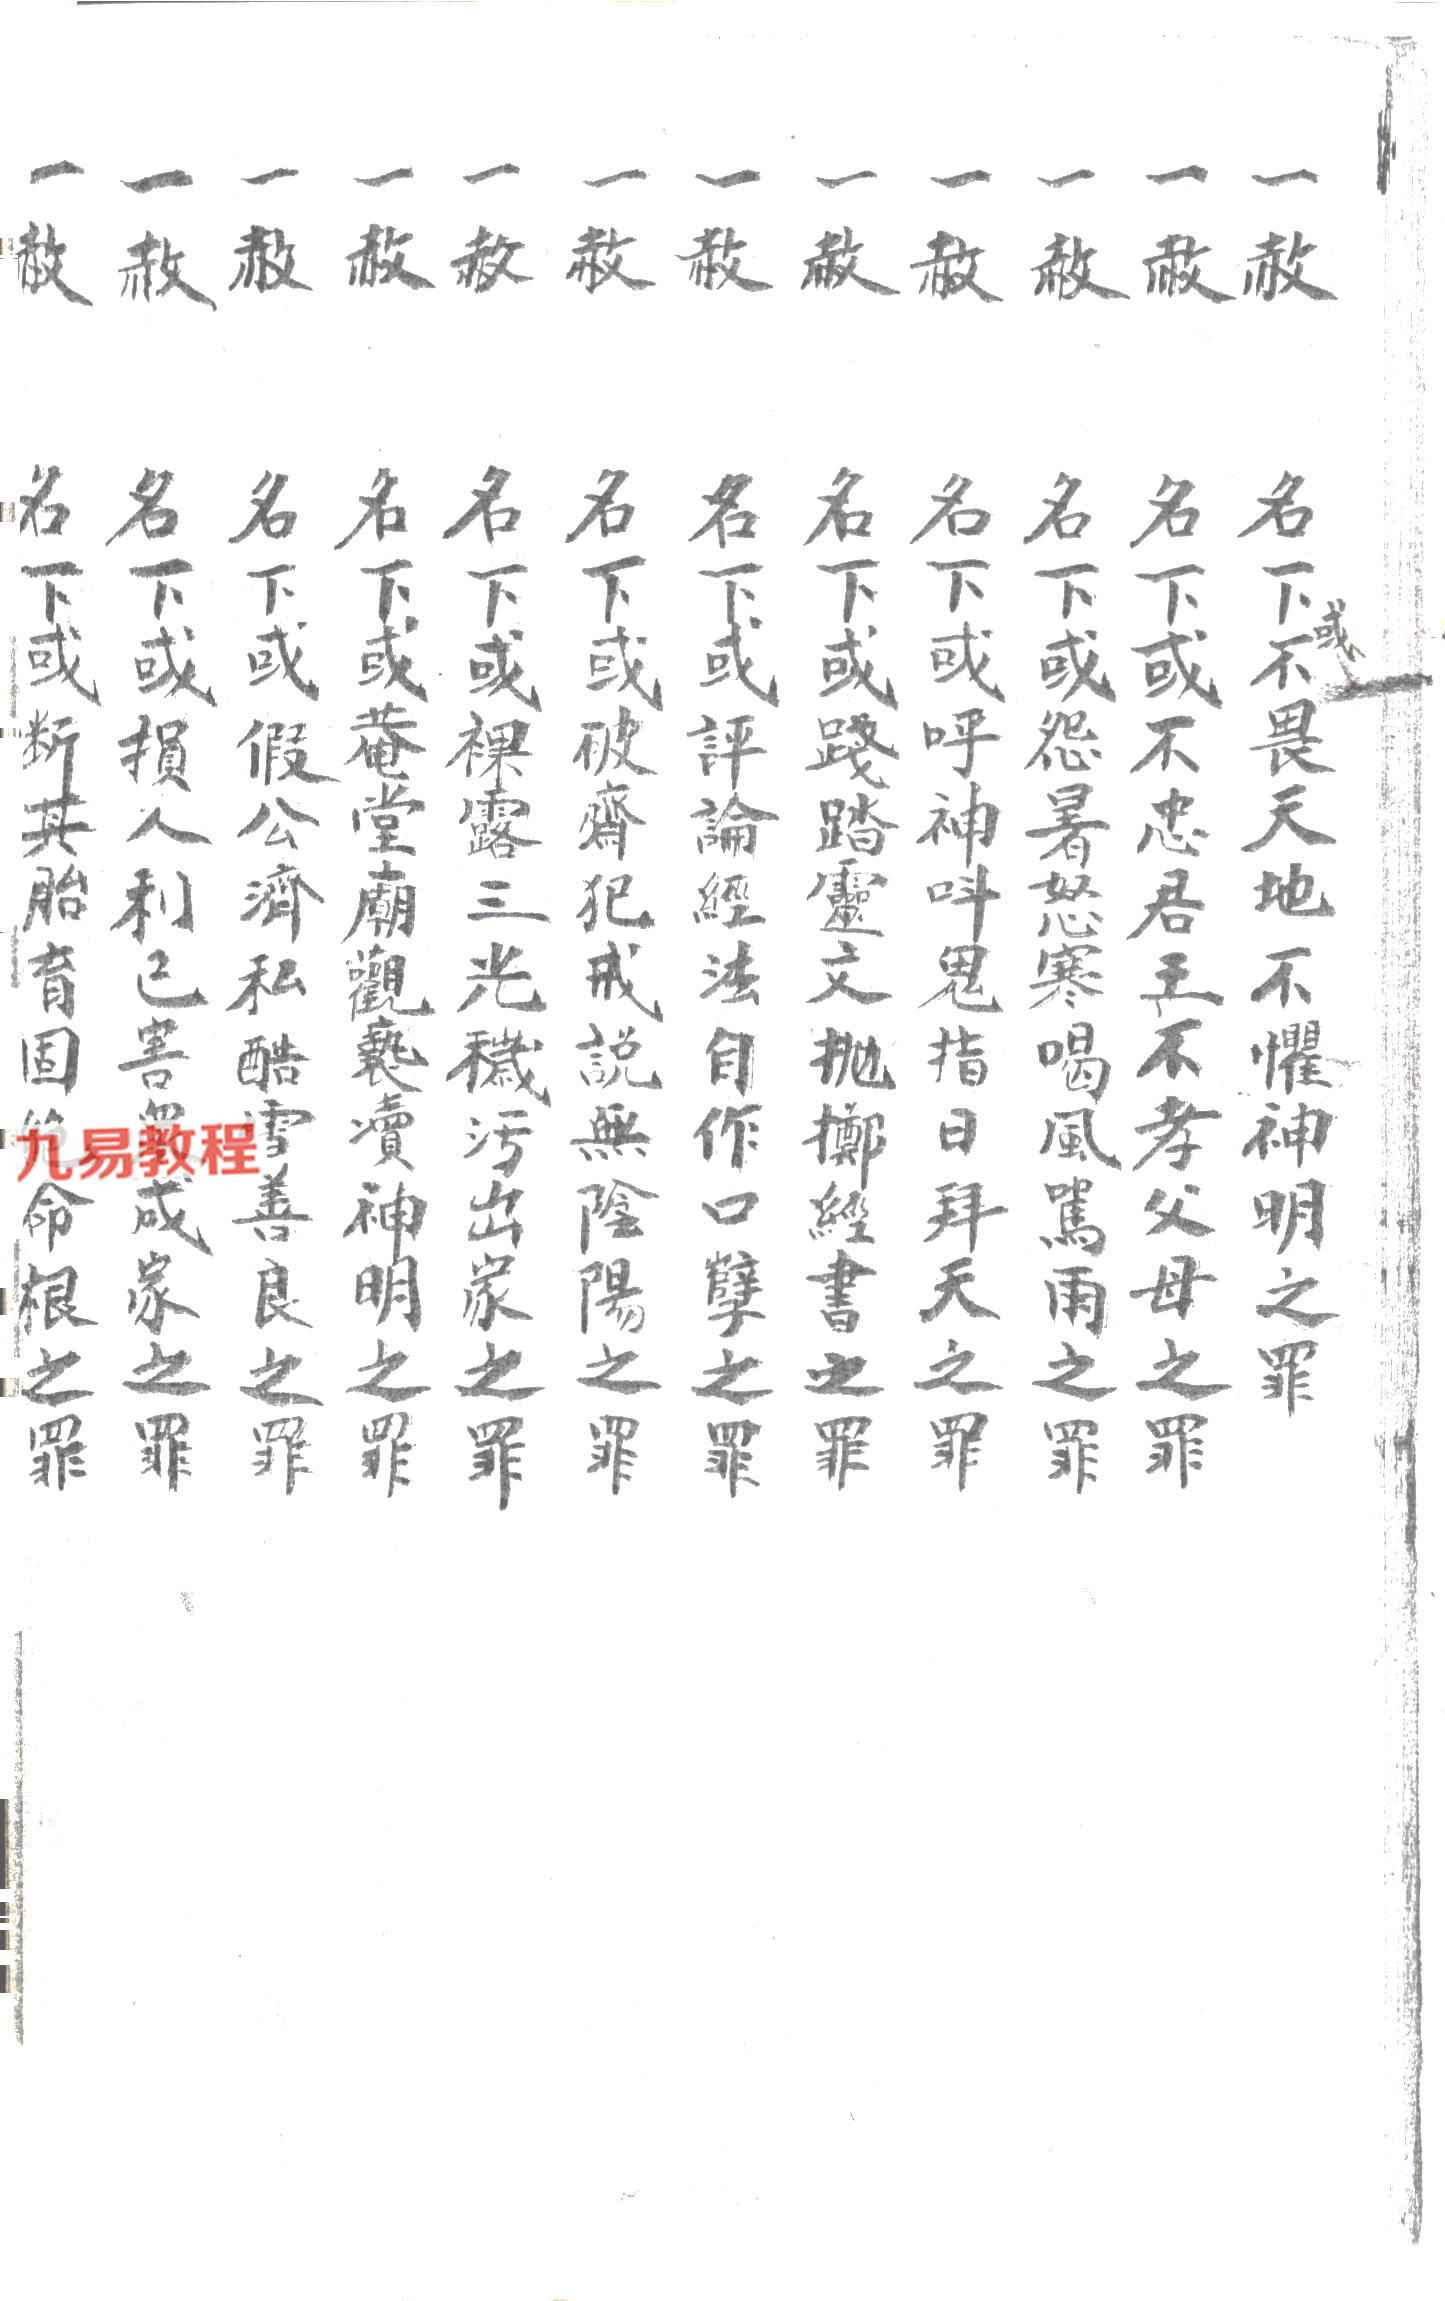 一赦 名下或不畏天地不懼神明之罪
一赦 名下或不忠君王不孝父母之罪
一赦 名下或怨暑怒寒喝風罵雨之罪
一赦 名下或呼神呌鬼指日拜天之罪
一赦 名下或踐踏靈文抛擲經書之罪
一赦 名下或評論經法自作口孽之罪
一赦 名下或破齋犯戒説無陰陽之罪
一赦 名下或裸露三光穢污出家之罪
一赦 名下或菴堂廟觀褻瀆神明之罪
一赦 名下或假公濟私酷雪善良之罪
一赦 名下或損人利己害衆成家之罪
一赦 名下或斷其胎育固絶命根之罪
九易教程